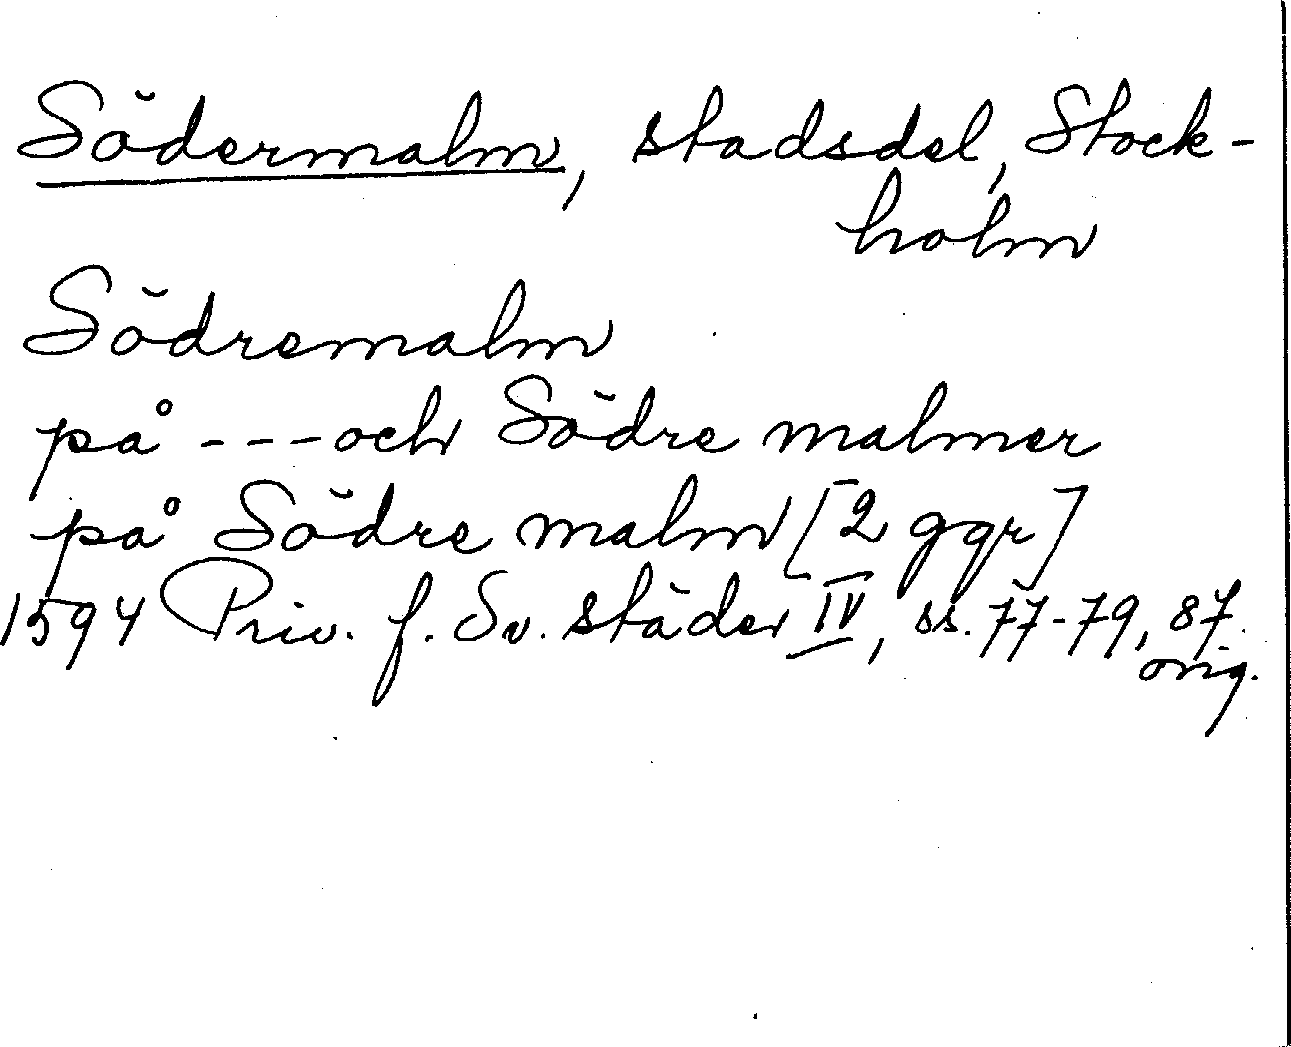 Södermalm, stadsdel, Stock-
holm
Södremalm
på ---och Södre malmer
på Södre malm [2 ggr]
1594 Priv. f. Sv. städer IV, ss. 77-79, 87.
orig.